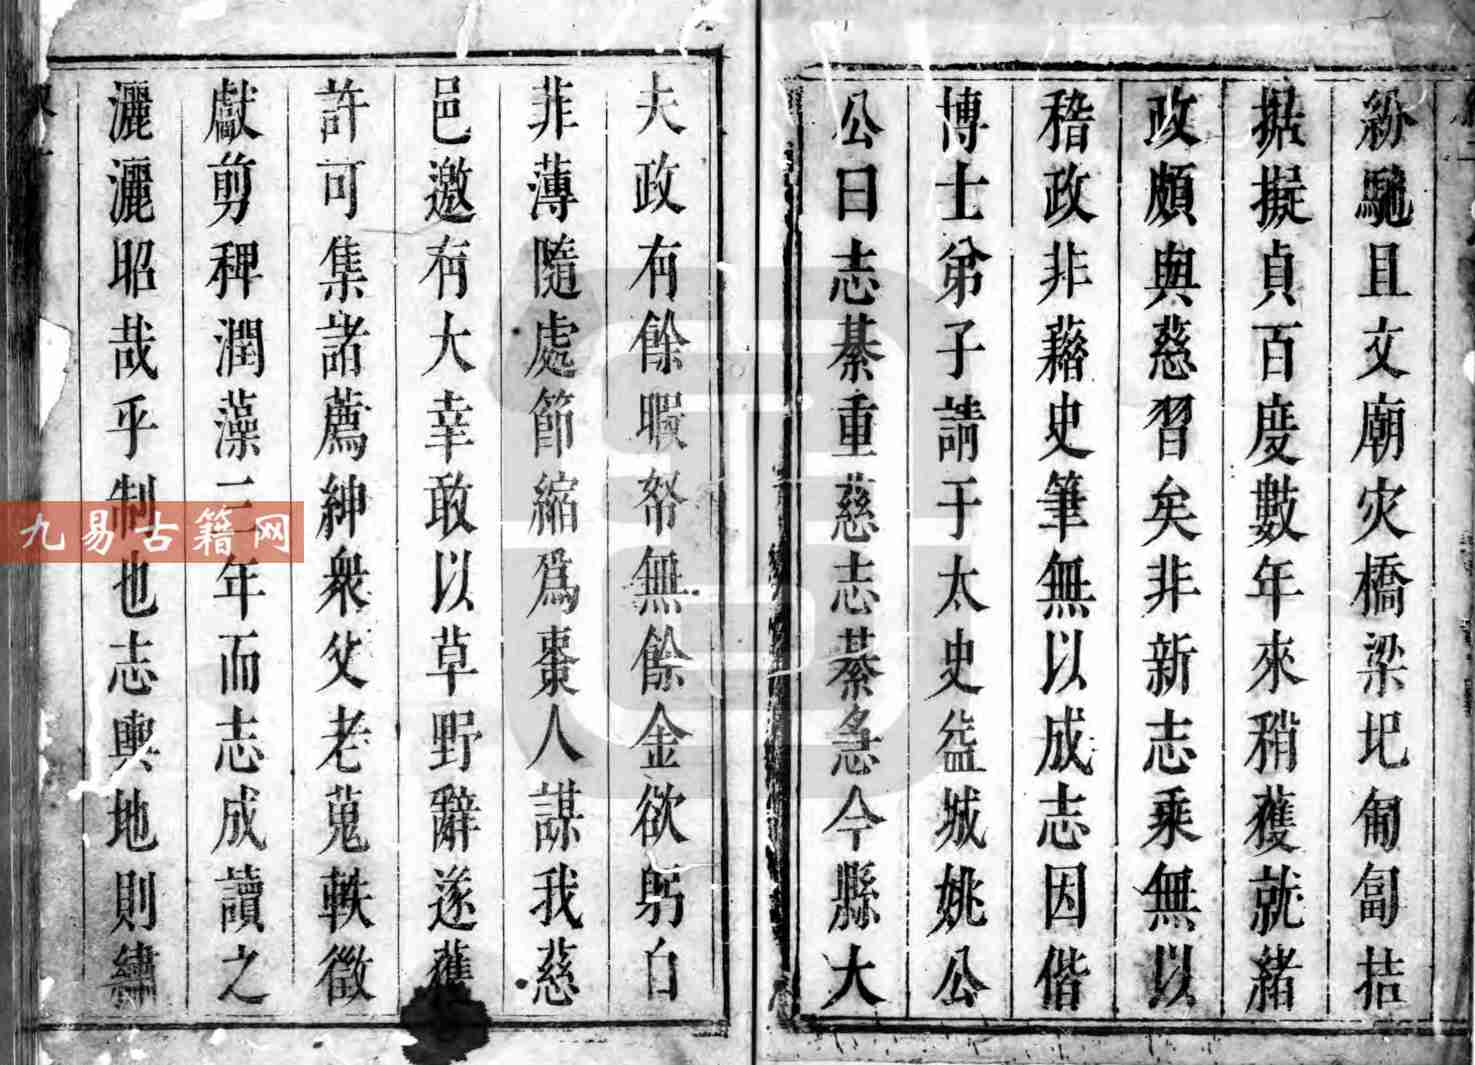 紛馳且文廟灾橋梁圯匍匐拮
据擬貞百度數年來稍獲就緒
政頗與慈習矣非新志乘無以
稽政非藉史筆無以成志因偕
博士弟子請于太史益城姚公
公曰志綦重慈志綦急今縣大
夫政有餘暇帑無餘金欲躬自
菲薄隨處節縮爲棗人謀我慈
邑邀有大幸敢以草野辭遂獲
許可集諸薦紳衆父老蒐軼徵
獻剪稗潤藻三年而志成讀之
灑灑昭哉乎制也志輿地則繡
九易古籍网